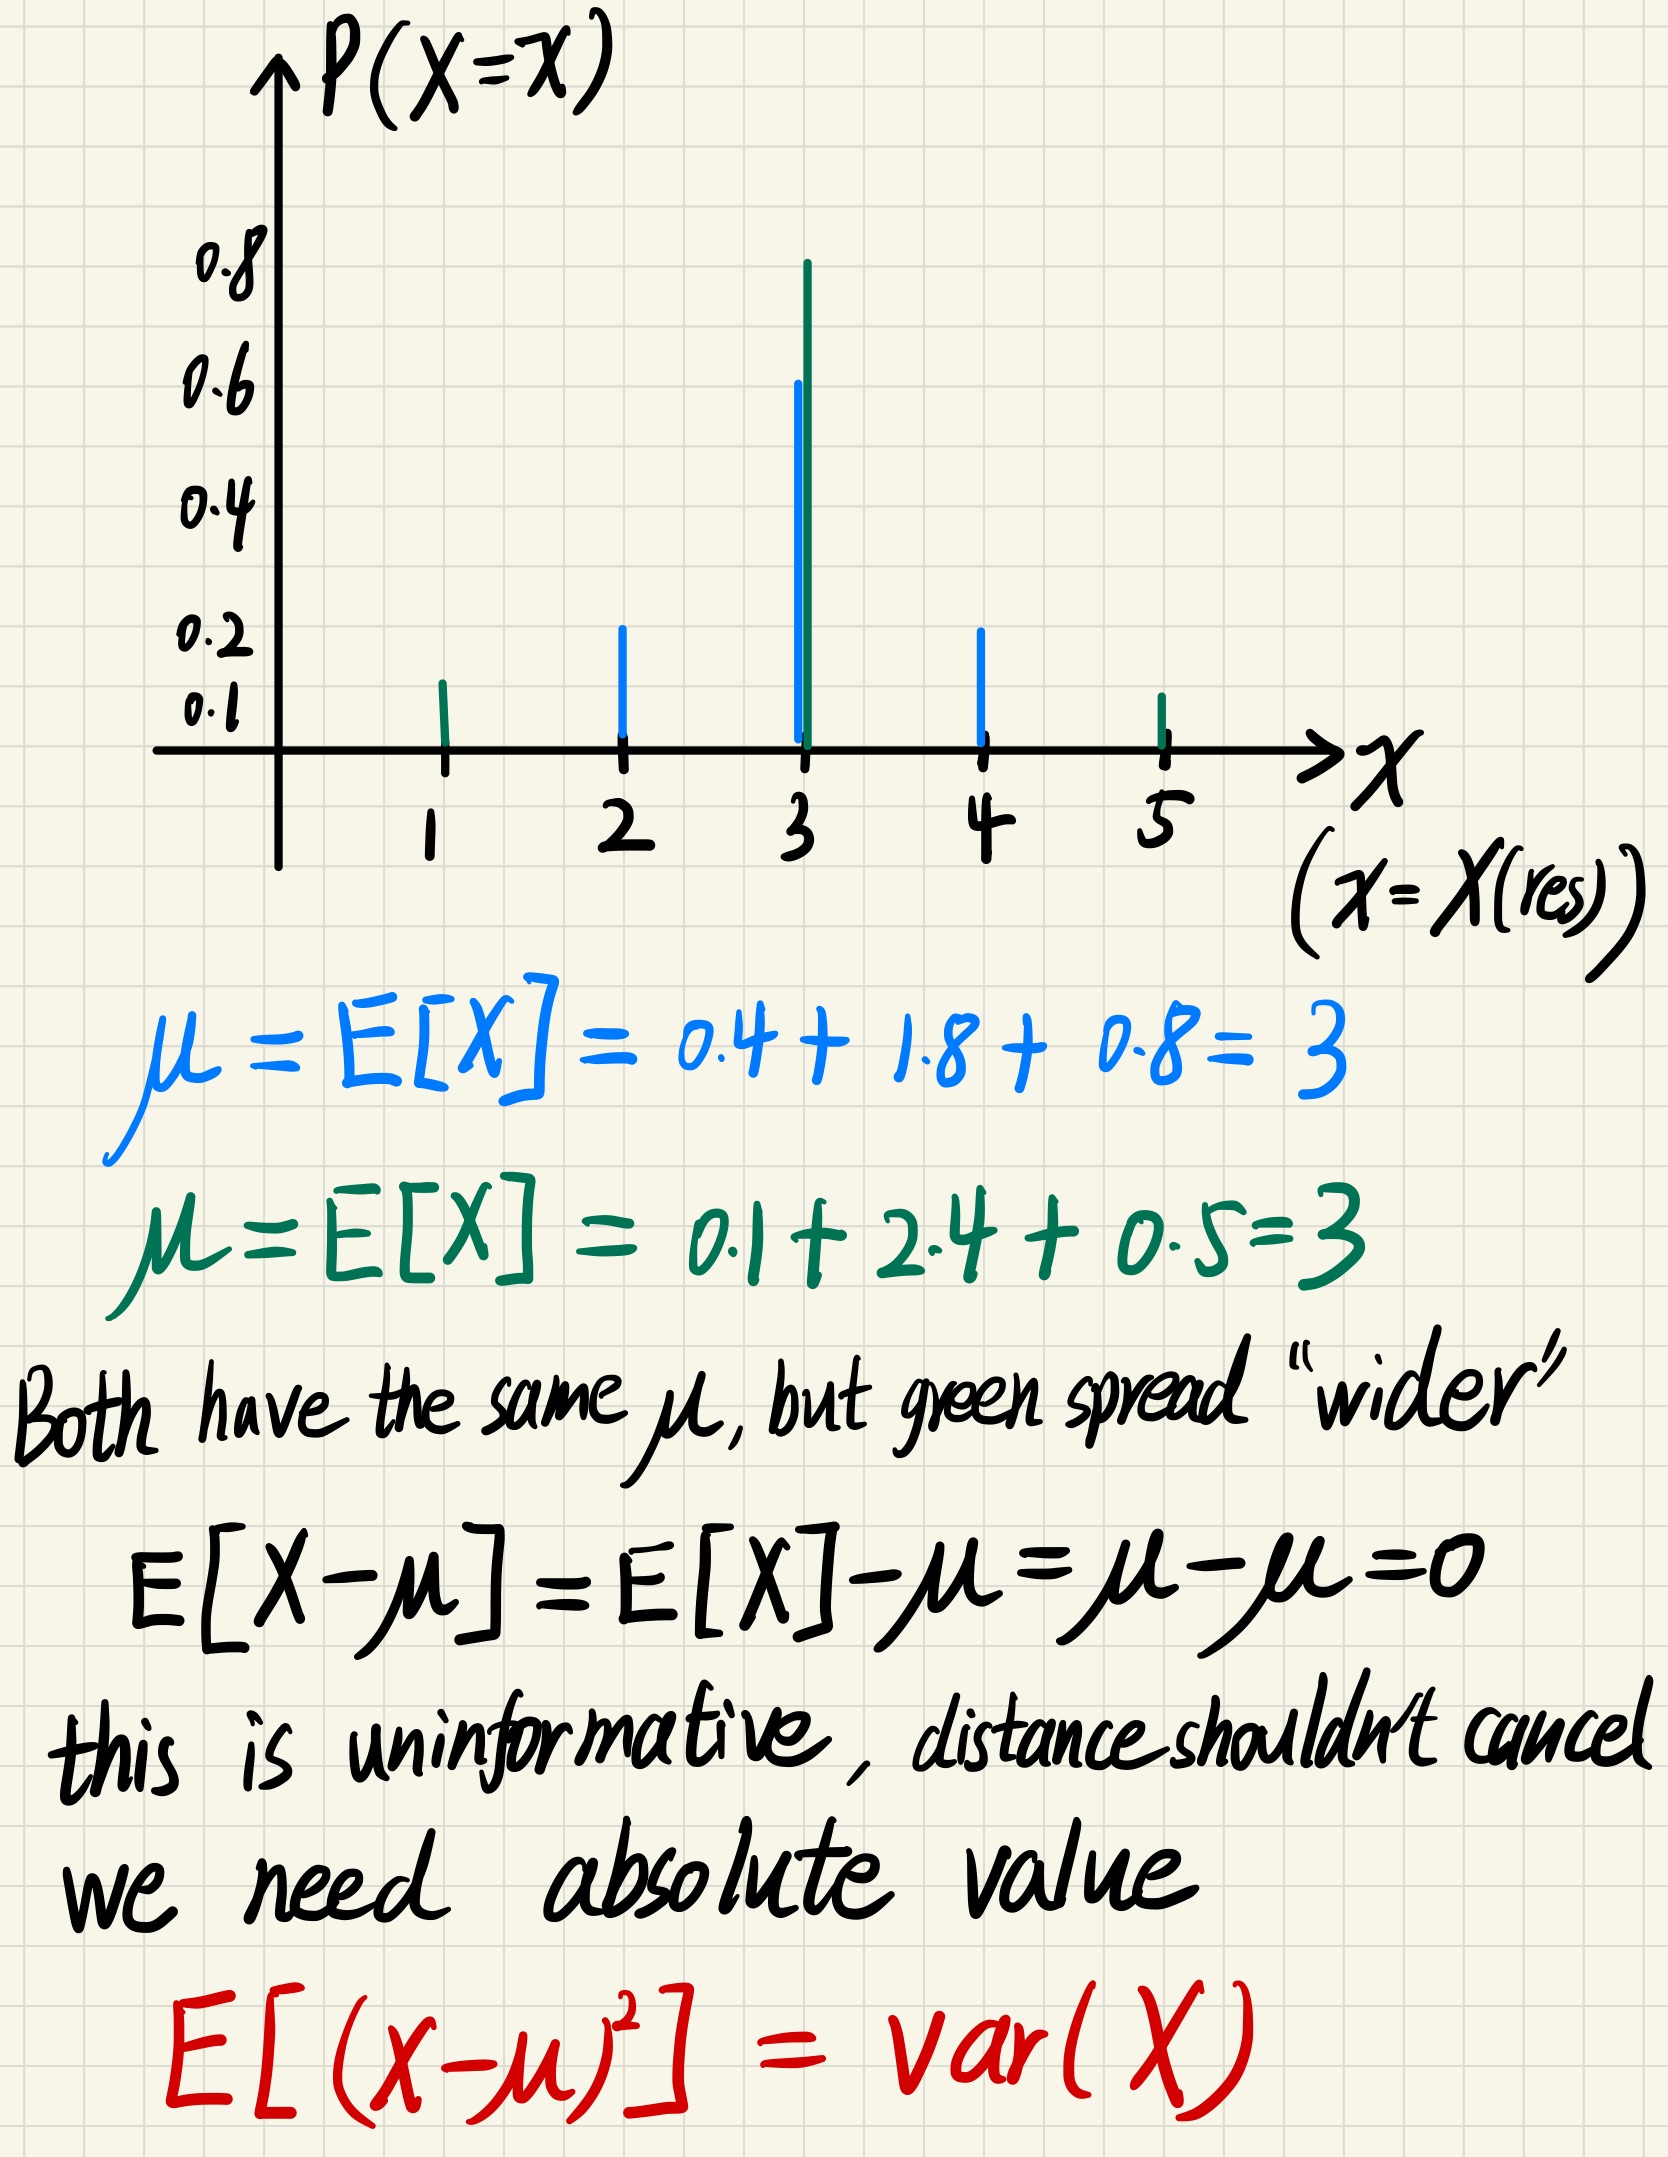 P(X=x)
0.8
0.6
0.4
0.2
0.1
1 2 3 4 5
x
(x = X(res))
μ = E[X] = 0.4 + 1.8 + 0.8 = 3
μ = E[X] = 0.1 + 2.4 + 0.5 = 3
Both have the same μ, but green spread "wider"
E[X-μ] = E[X] - μ = μ - μ = 0
this is uninformative, distance shouldn't cancel
we need absolute value
E[(X-μ)²] = var(X)